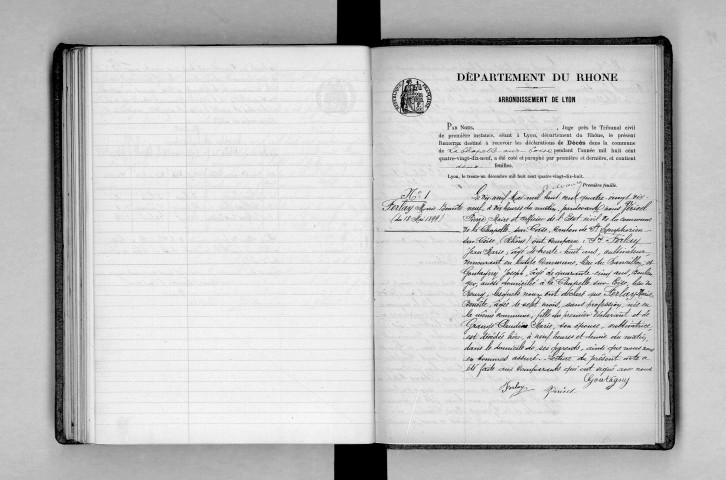 DÉPARTEMENT DU RHONE
ARRONDISSEMENT DE LYON
PAR NOUS, , Juge près le Tribunal civil
de première instance, séant à Lyon, département du Rhône, le présent
REGISTRE destiné à recevoir les déclarations de Décès dans la commune
de La Chapelle-sur-Coise pendant l'année mil huit cent
quatre-vingt-dix-neuf, a été coté et paraphé par première et dernière, et contient
feuilles.
Lyon, le trente-un décembre mil huit cent quatre-vingt-dix-huit.
Première feuille.
N° 1
Ferlay Marie Benoîte
(du 18 Mai 1899)
Dix neuf Mai mil huit cent quatre vingt dix
neuf, à dix heures du matin, pardevant nous
Maire et officier de l'Etat civil de la commune
de la Chapelle-sur-Coise, canton de St Symphorien-
sur-Coise (Rhône) ont comparu: Ferlay
Jean Marie, âgé de trente huit ans, cultivateur
demeurant en ladite Commune, lieu de et
Goutagny Joseph, âgé de quarante cinq ans,
aussi domicilié à la Chapelle-sur-Coise, lieu du
Bourg, lesquels nous ont déclaré que Ferlay Marie
Benoîte, âgée de sept mois, sans profession, née en
la même commune, fille du premier déclarant et de
Grange Claudine Marie, son épouse, cultivatrice,
est décédée hier, à neuf heures et demie du matin,
dans le domicile de ses parents, ainsi que nous nous
en sommes assuré. Lecture du présent acte a
été faite aux comparants qui ont signé avec nous
Goutagny
Ferlay